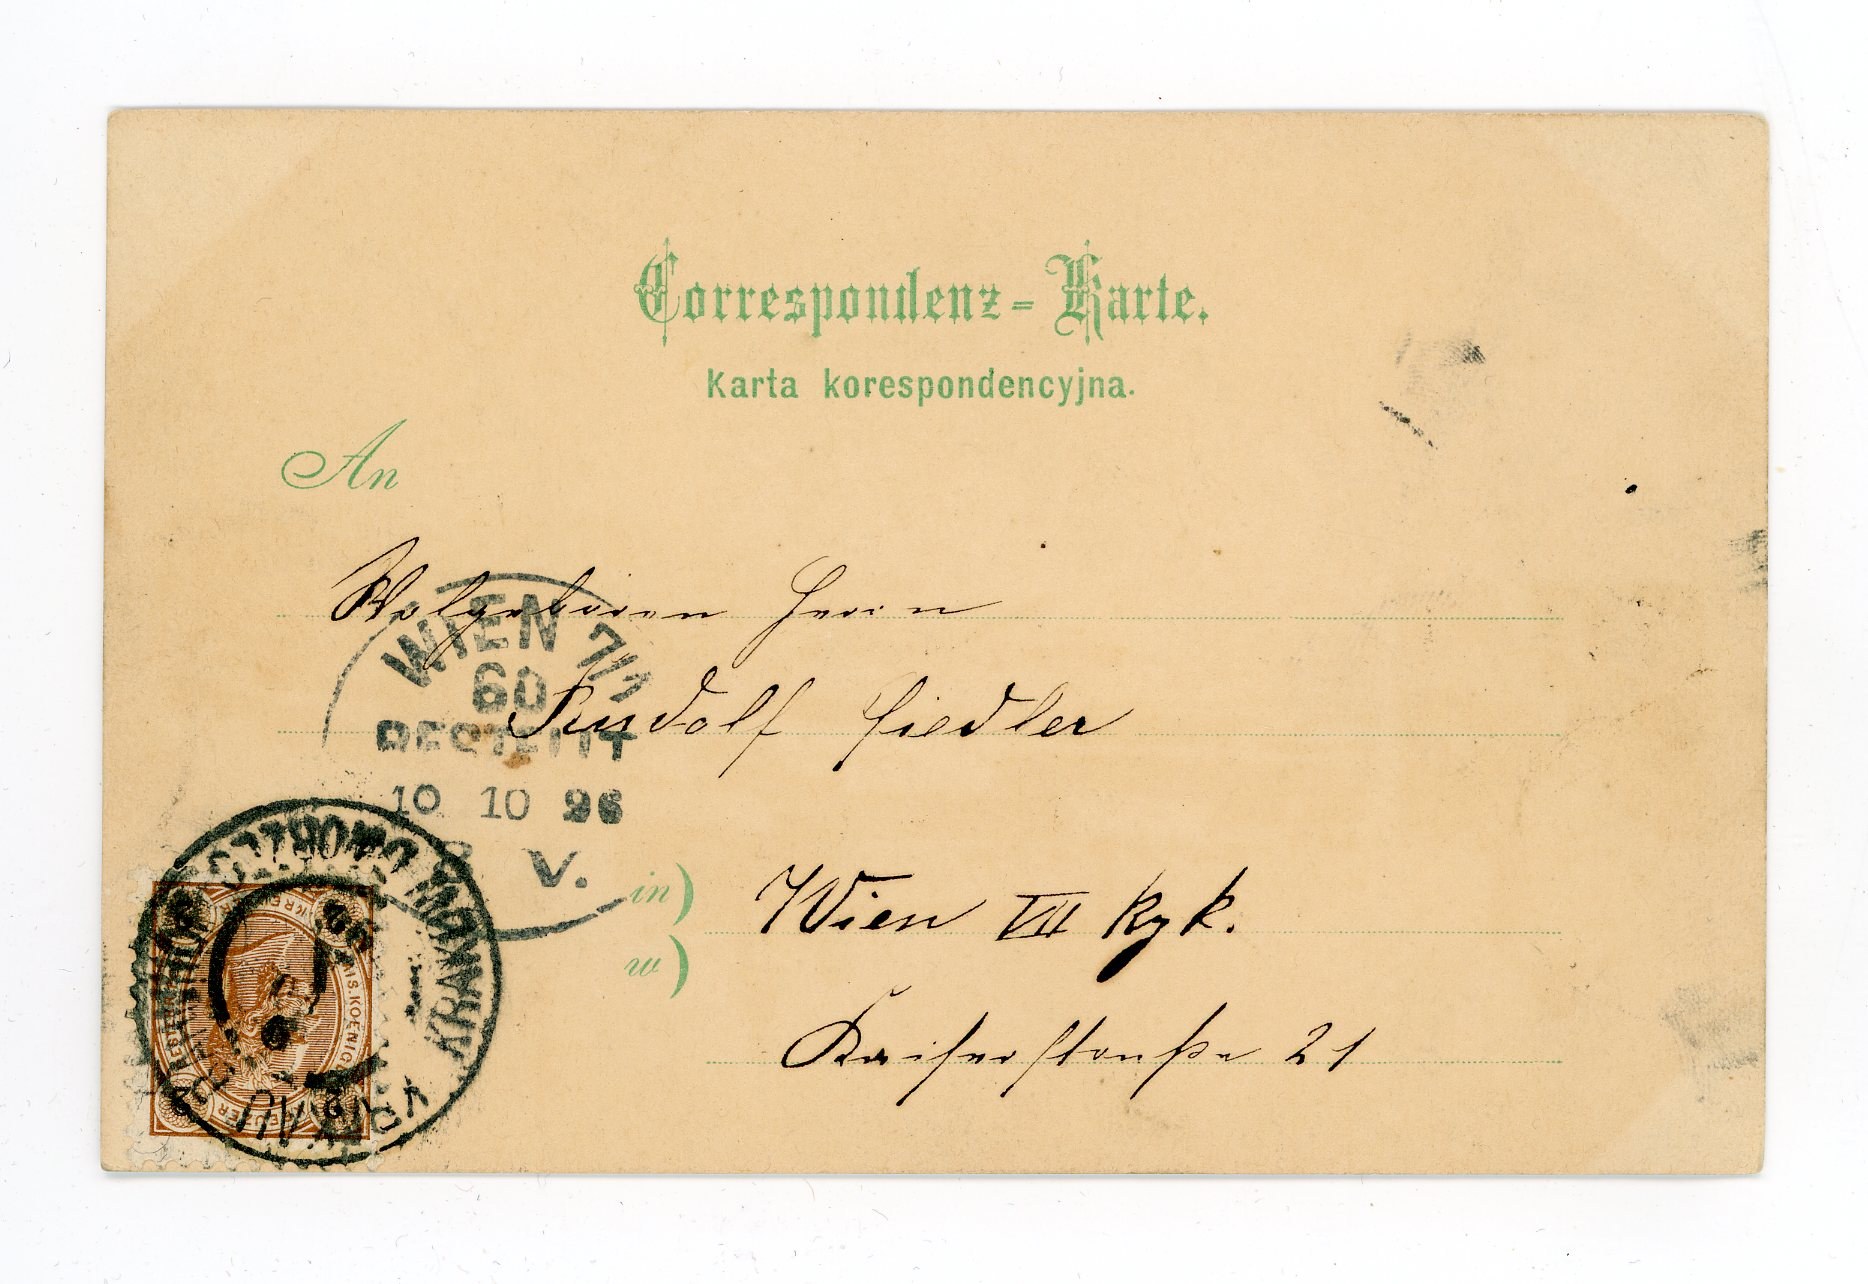 Correspondenz-Karte.
Karta korespondencyjna.
An
Wolgeboren Herrn
WIEN 7/1
60
Rudolf Fiedler
BESTELLT
10 10 96
V.
in) Wien VII
w)
Kaiserstraße 21
KRAKÓW DWORZEC
KRAKAU
2 2
2
KREUZER